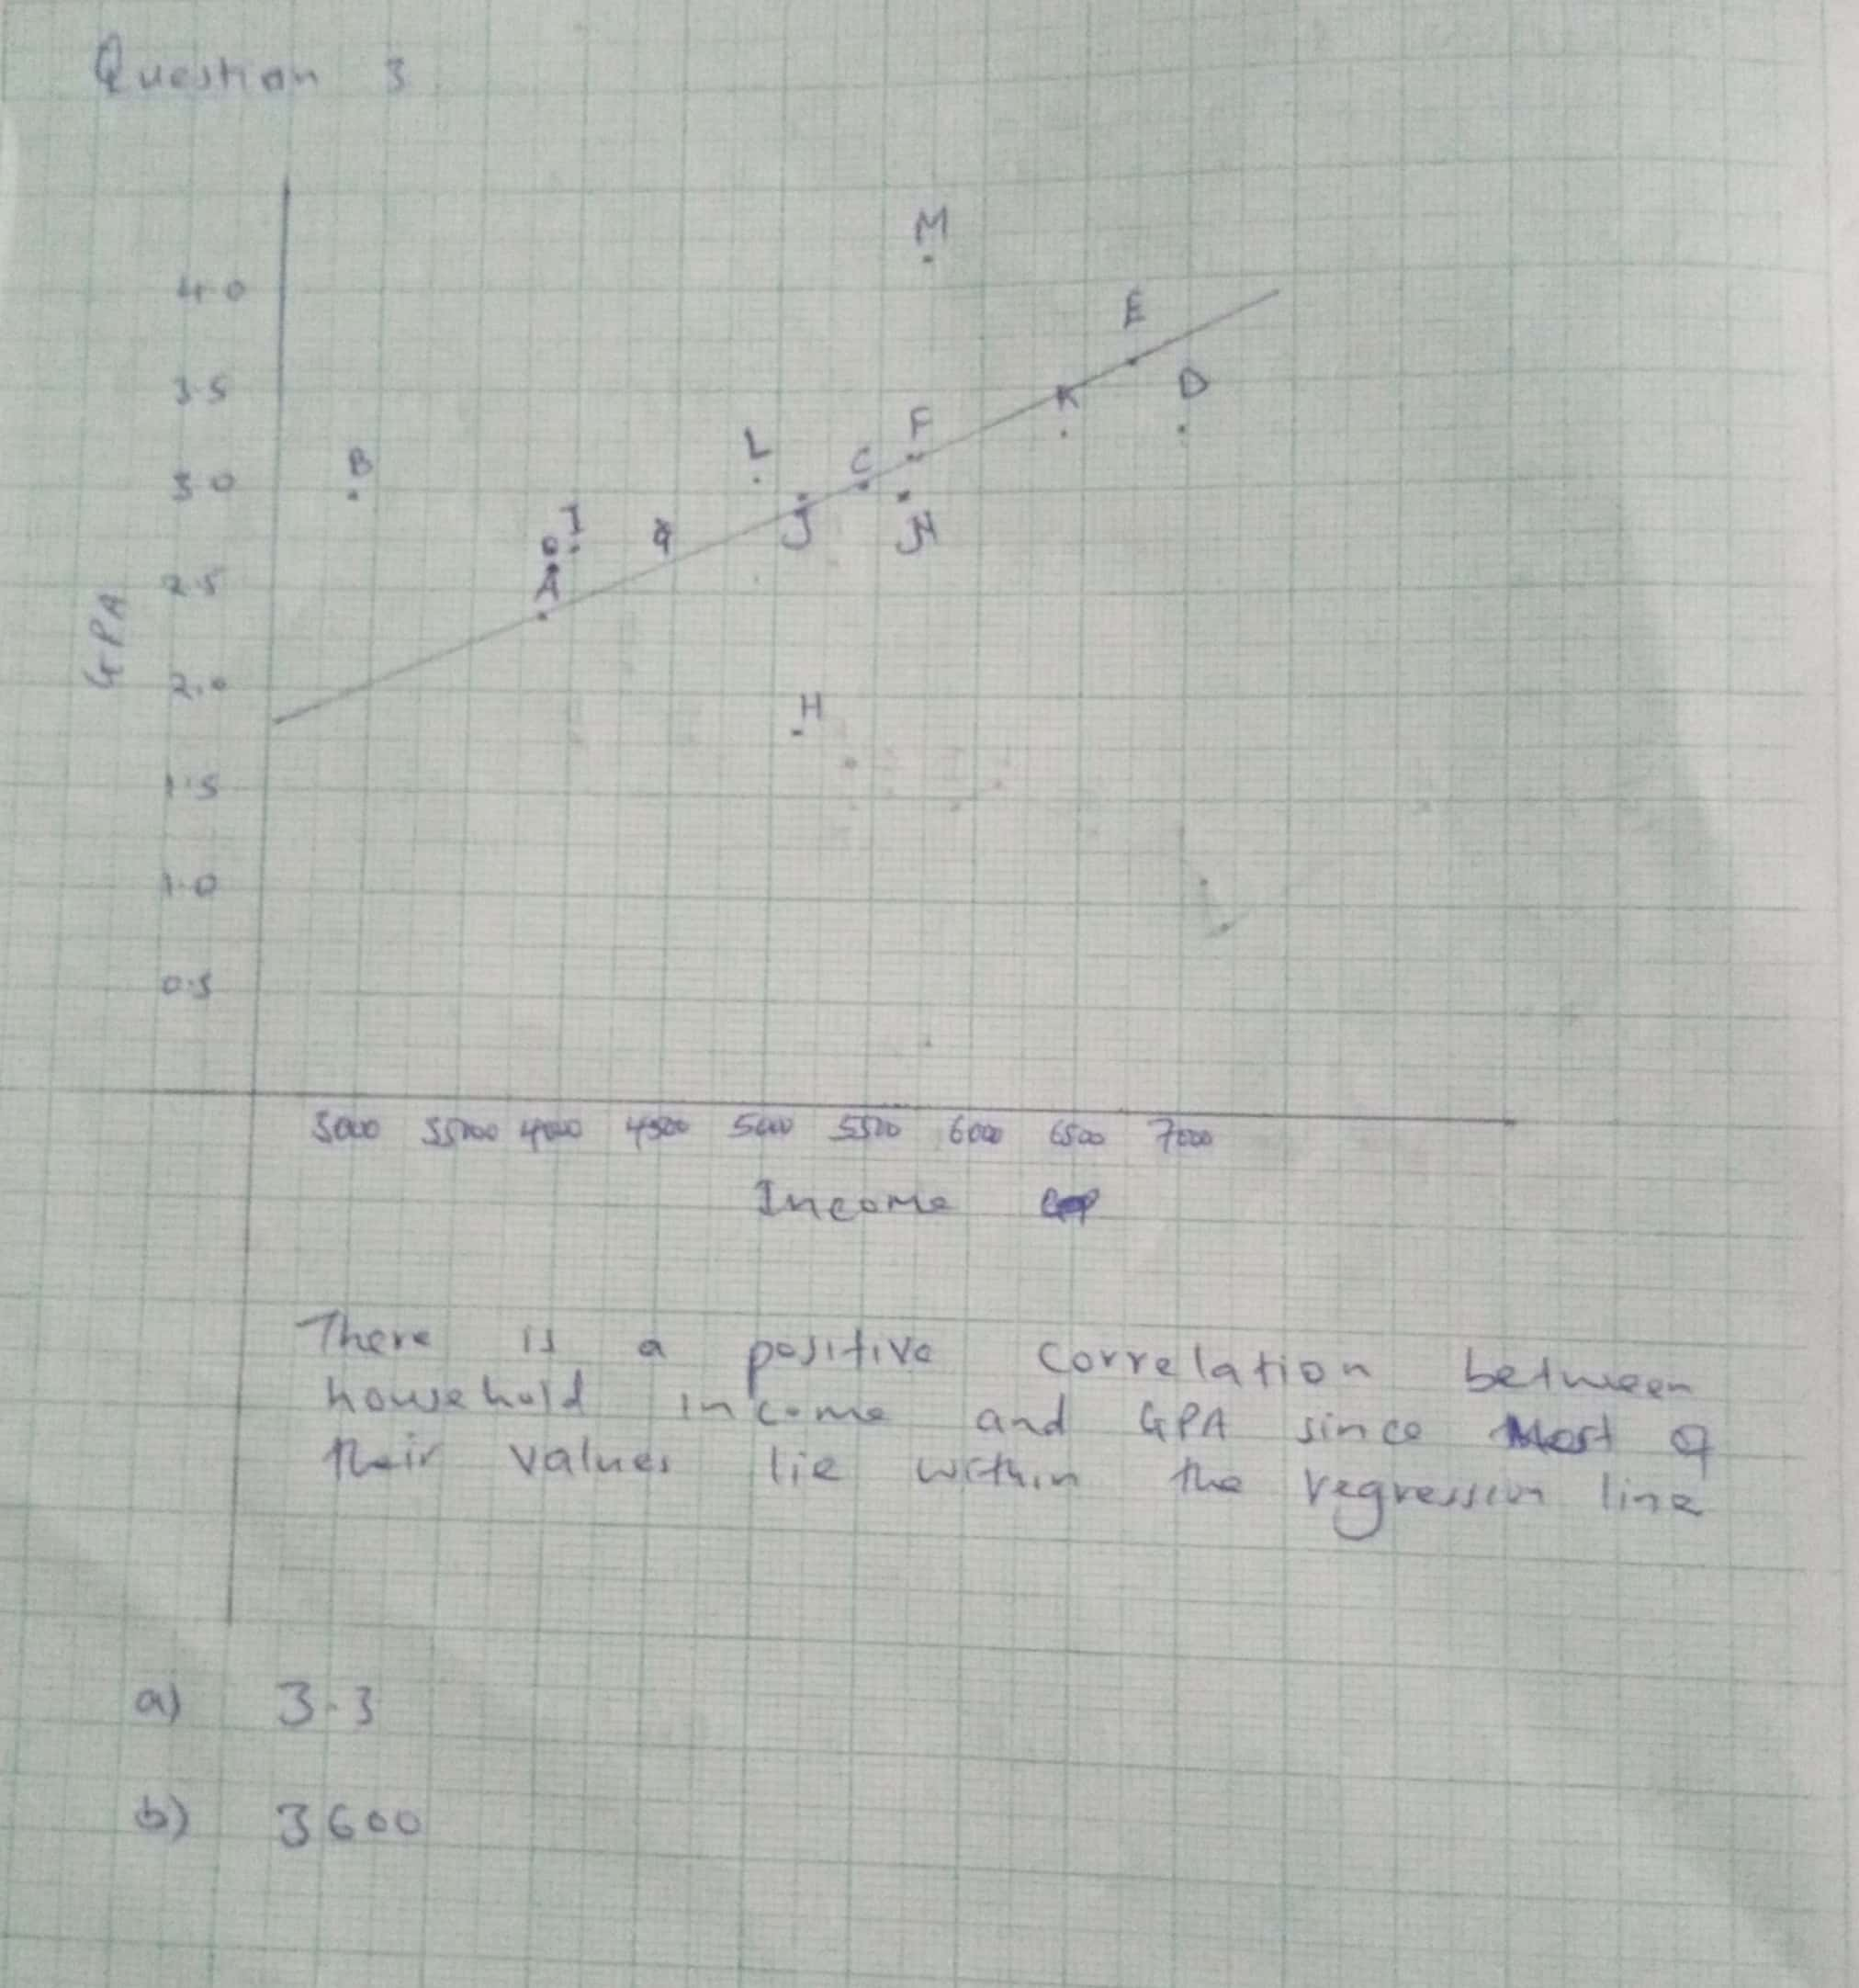 Question 3
M
4.0
E
3.5
D
K
F
L
C
B
3.0
I
J
N
A
2.5
GPA
2.0
H
1.5
1.0
0.5
3000 35000 4000 4500 5000 5500 6000 6500 7000
Income
There is a positive correlation between
household income and GPA since Most of
their values lie within the regression line
a) 3.3
b) 3600